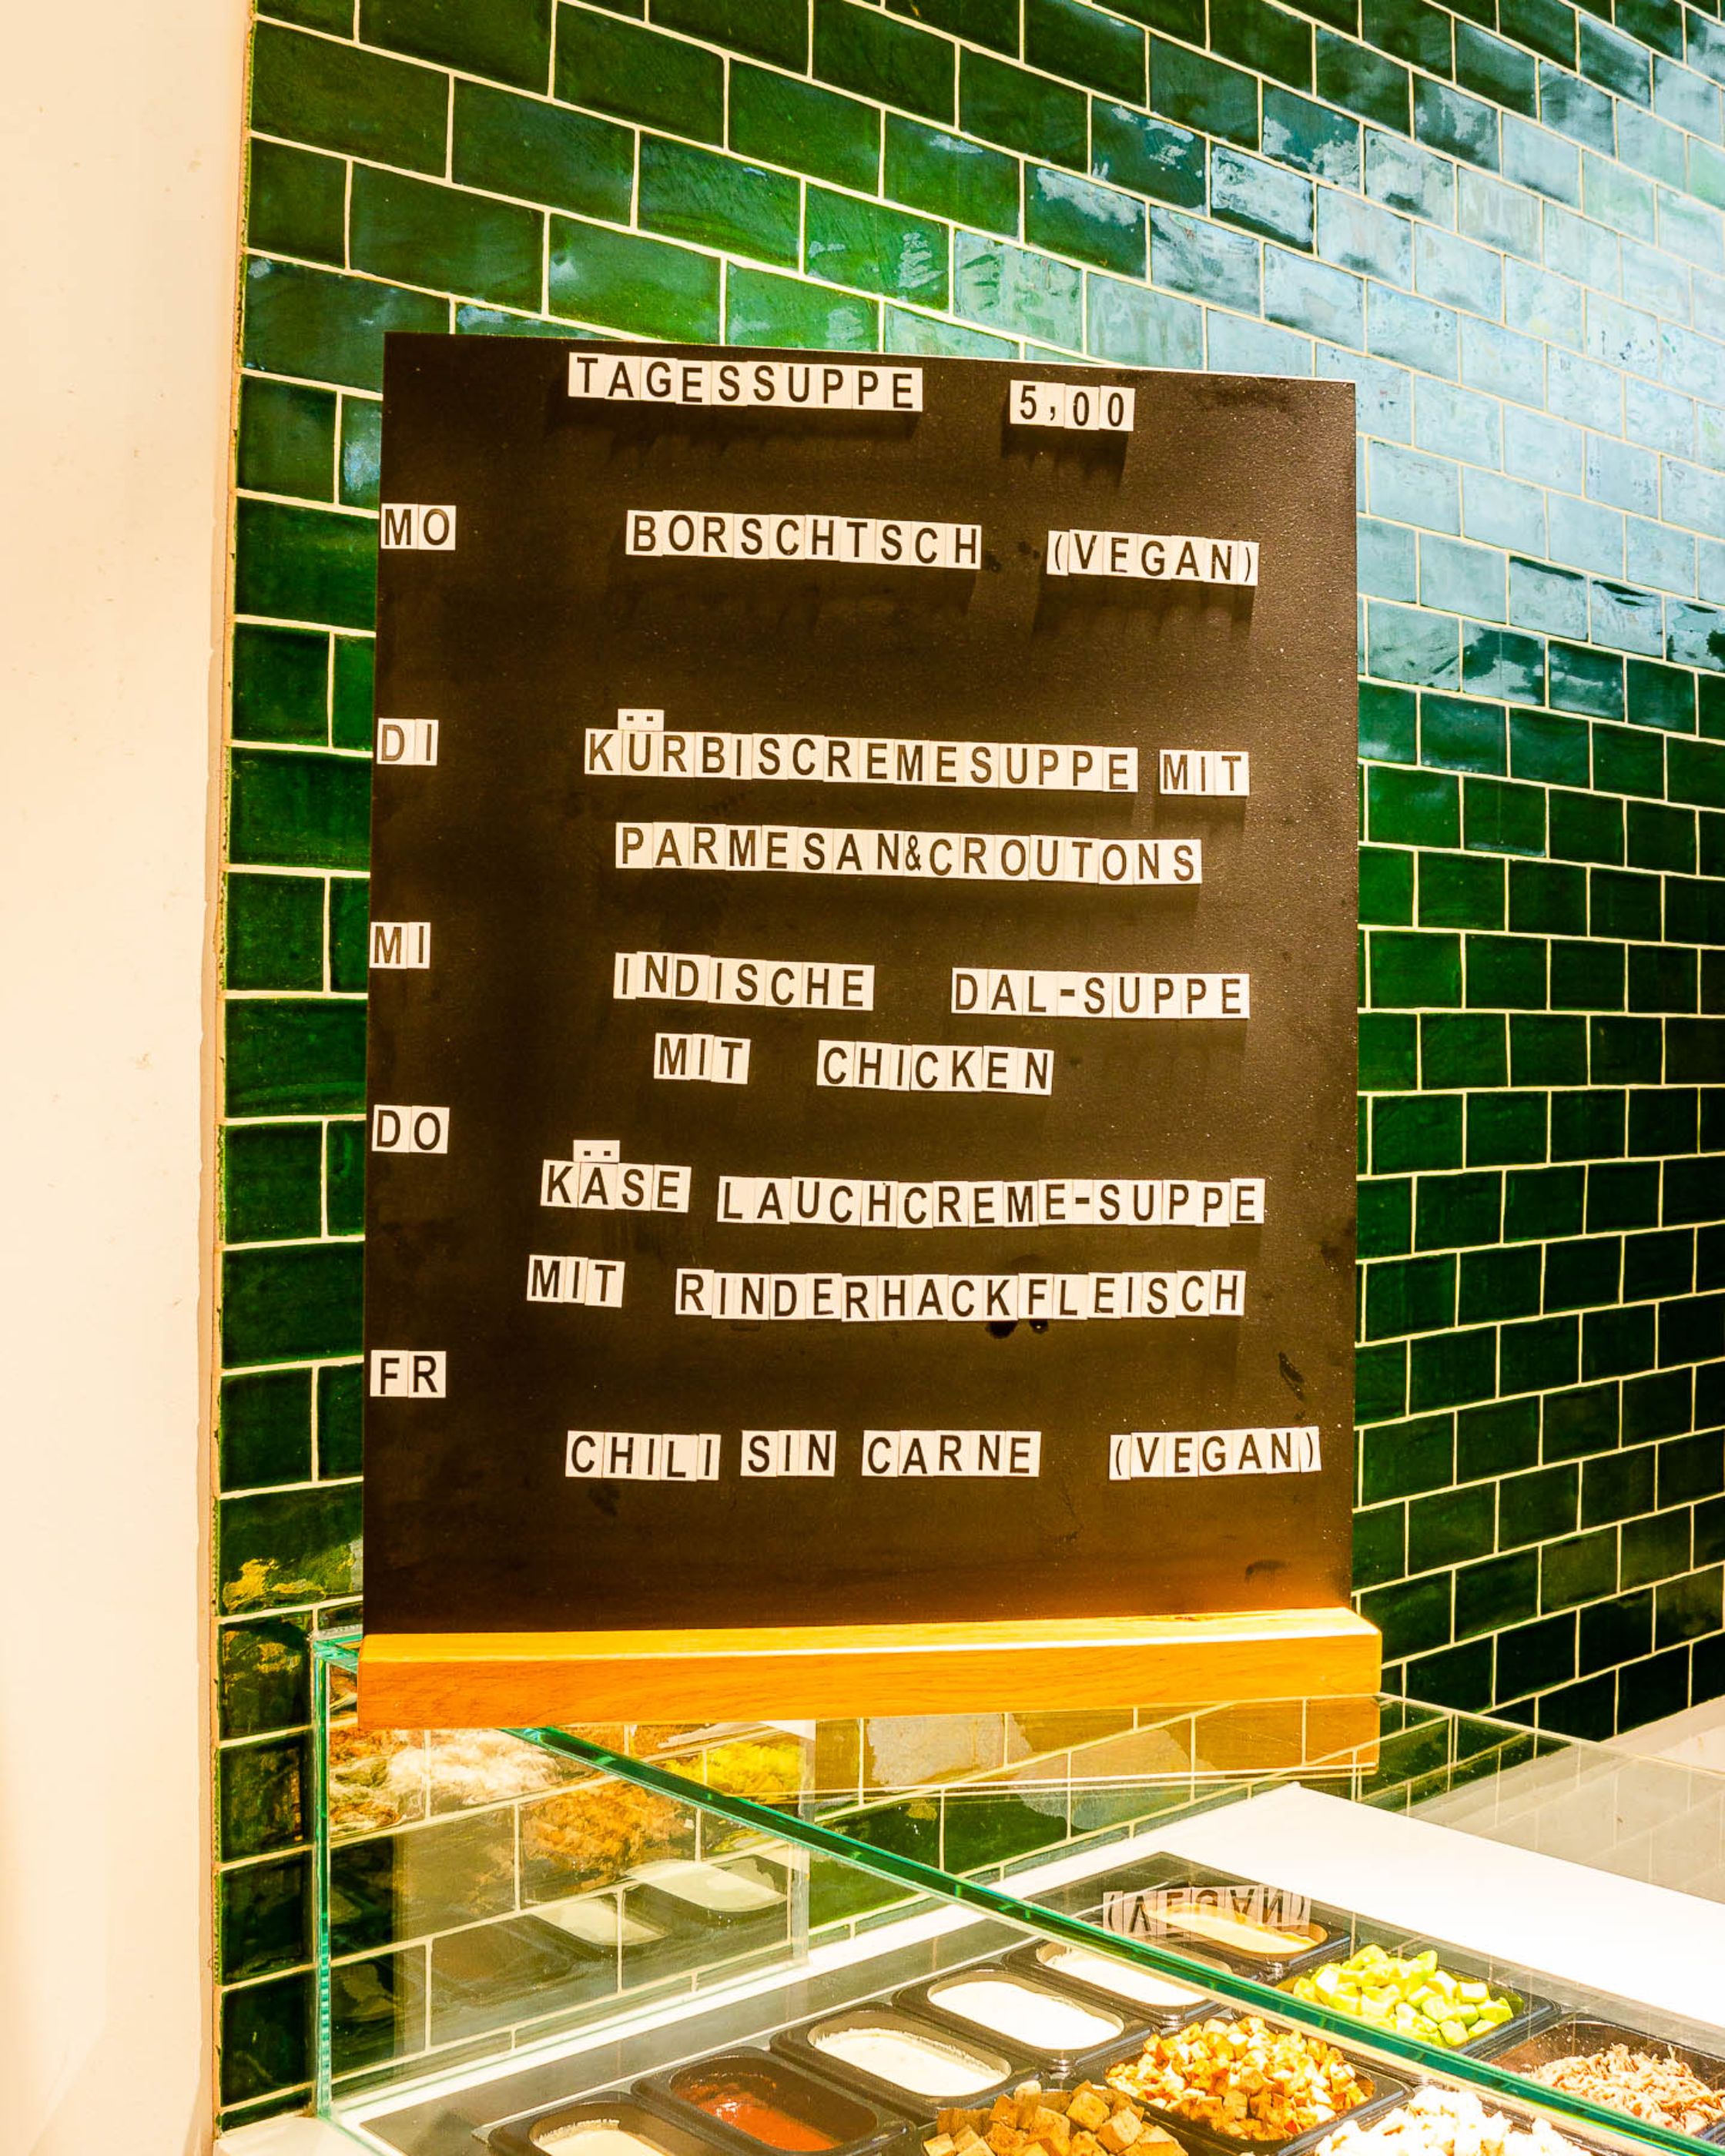 TAGESSUPPE 5,00
MO BORSCHTSCH (VEGAN)
DI KÜRBISCREMESUPPE MIT
PARMESAN&CROUTONS
MI INDISCHE DAL-SUPPE
MIT CHICKEN
DO
KÄSE LAUCHCREME-SUPPE
MIT RINDERHACKFLEISCH
FR
CHILI SIN CARNE (VEGAN)